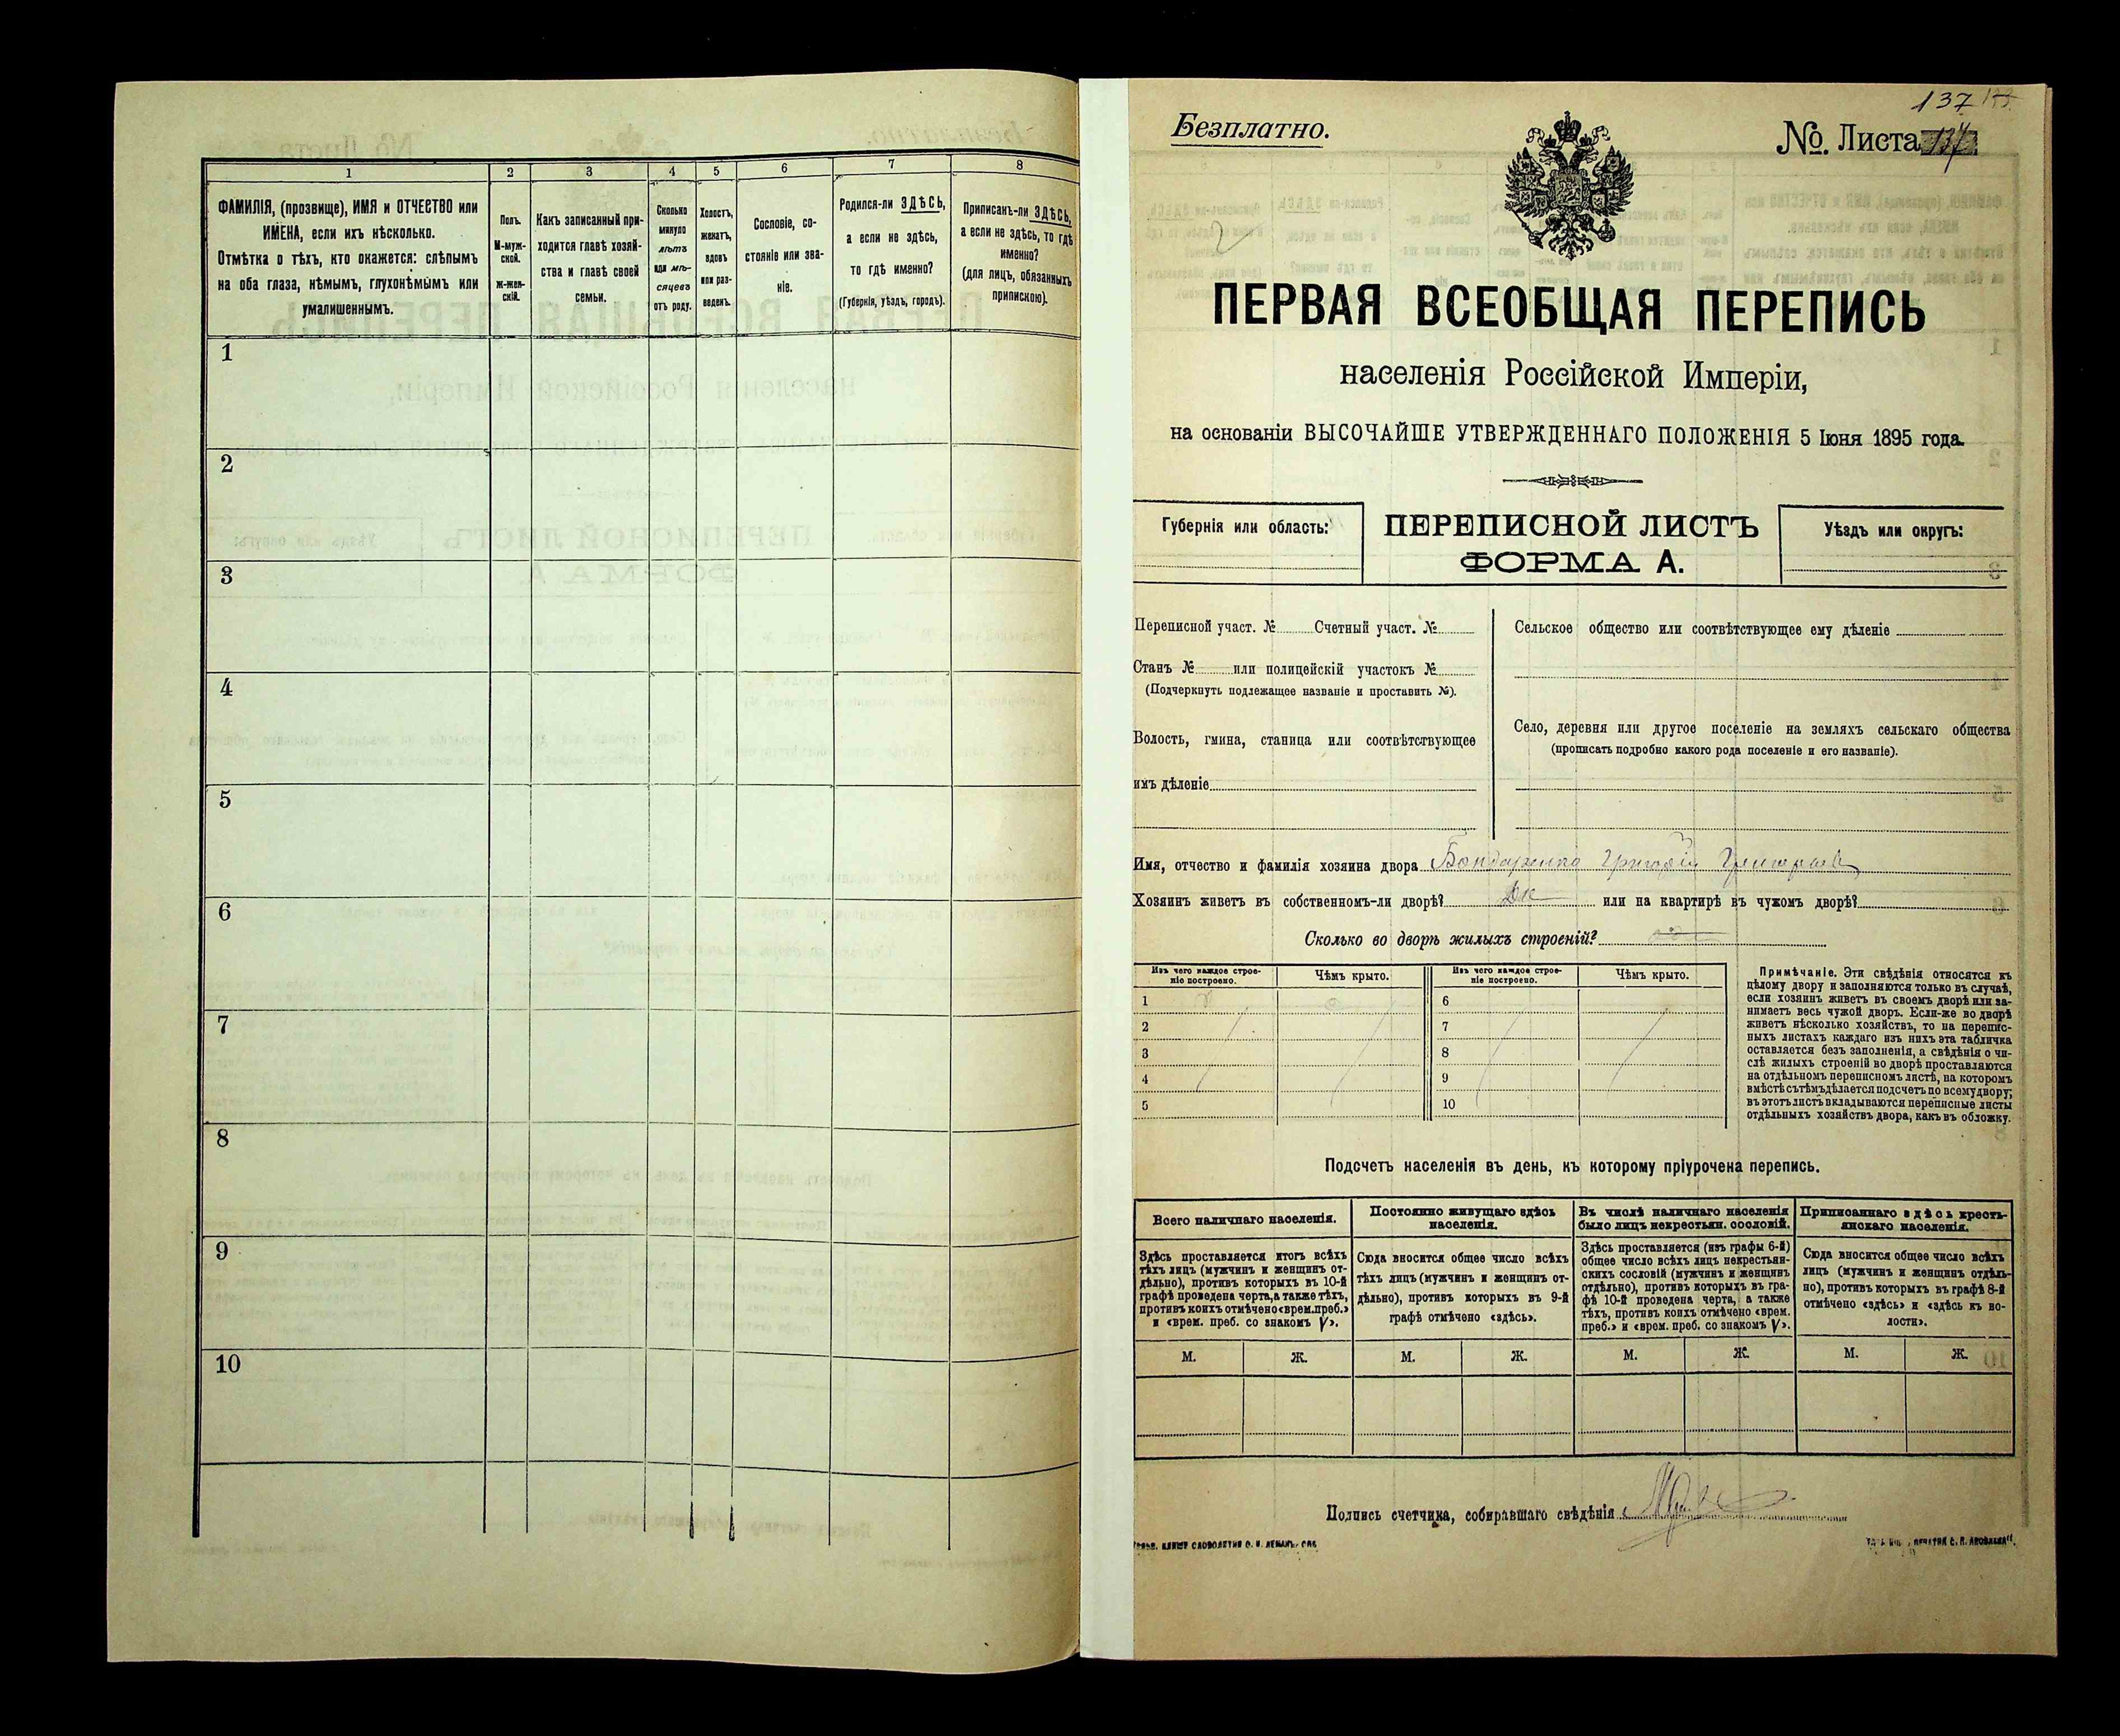 1
2
3
4
5
6
7
8
ФАМИЛІЯ, (прозвище), ИМЯ и ОТЧЕСТВО или
ИМЕНА, если ихъ нѣсколько.
Отмѣтка о тѣхъ, кто окажется: слѣпымъ
на оба глаза, нѣмымъ, глухонѣмымъ или
умалишеннымъ.
Полъ.
М-муж-
ской.
ж-жен-
скій.
Какъ записанный при-
ходится главѣ хозяй-
ства и главѣ своей
семьи.
Сколько
минуло
лѣтъ
или мѣ-
сяцевъ
отъ роду.
Холостъ,
женатъ,
вдовъ
или раз-
веденъ.
Сословіе, со-
стояніе или зва-
ніе.
Родился-ли ЗДѢСЬ,
а если не здѣсь,
то гдѣ именно?
(Губернія, уѣздъ, городъ).
Приписанъ-ли ЗДѢСЬ,
а если не здѣсь, то гдѣ
именно?
(для лицъ, обязанныхъ
припискою).
1
2
3
4
5
6
7
8
9
10
137
Безплатно.
№. Листа 137
ПЕРВАЯ ВСЕОБЩАЯ ПЕРЕПИСЬ
населенія Россійской Имперіи,
на основаніи ВЫСОЧАЙШЕ УТВЕРЖДЕННАГО ПОЛОЖЕНІЯ 5 Іюня 1895 года.
Губернія или область:
ПЕРЕПИСНОЙ ЛИСТЪ
ФОРМА А.
Уѣздъ или округъ:
Переписной участ. № Счетный участ. №
Станъ № или полицейскій участокъ №
(Подчеркнуть подлежащее названіе и проставить №).
Волость, гмина, станица или соотвѣтствующее
имъ дѣленіе
Сельское общество или соотвѣтствующее ему дѣленіе
Село, деревня или другое поселеніе на земляхъ сельскаго общества
(прописать подробно какого рода поселеніе и его названіе).
Имя, отчество и фамилія хозяина двора Бондаренко Григорій Григорьев
Хозяинъ живетъ въ собственномъ-ли дворѣ? Да или на квартирѣ въ чужомъ дворѣ?
Сколько во дворѣ жилыхъ строеній?
Изъ чего каждое строе-
ніе построено.
Чѣмъ крыто.
Изъ чего каждое строе-
ніе построено.
Чѣмъ крыто.
1
6
2
7
3
8
4
9
5
10
Примѣчаніе. Эти свѣдѣнія относятся къ
цѣлому двору и заполняются только въ случаѣ,
если хозяинъ живетъ въ своемъ дворѣ или за-
нимаетъ весь чужой дворъ. Если-же во дворѣ
живетъ нѣсколько хозяйствъ, то на перепис-
ныхъ листахъ каждаго изъ нихъ эта табличка
оставляется безъ заполненія, а свѣдѣнія о чи-
слѣ жилыхъ строеній во дворѣ проставляются
на отдѣльномъ переписномъ листѣ, на которомъ
вмѣстѣ съ тѣмъ дѣлается подсчетъ по всему двору;
въ этотъ листъ вкладываются переписные листы
отдѣльныхъ хозяйствъ двора, какъ въ обложку.
Подсчетъ населенія въ день, къ которому пріурочена перепись.
Всего наличнаго населенія.
Постоянно живущаго здѣсь
населенія.
Въ числѣ наличнаго населенія
было лицъ некрестьян. сословій.
Приписаннаго здѣсь кресть-
янскаго населенія.
Здѣсь проставляется итогъ всѣхъ
тѣхъ лицъ (мужчинъ и женщинъ от-
дѣльно), противъ которыхъ въ 10-й
графѣ проведена черта, а также тѣхъ,
противъ коихъ отмѣчено «врем. преб.»
и «врем. преб. со знакомъ V».
Сюда вносится общее число всѣхъ
тѣхъ лицъ (мужчинъ и женщинъ от-
дѣльно), противъ которыхъ въ 9-й
графѣ отмѣчено «здѣсь».
Здѣсь проставляется (изъ графы 6-й)
общее число всѣхъ лицъ некрестьян-
скихъ сословій (мужчинъ и женщинъ
отдѣльно), противъ которыхъ въ гра-
фѣ 10-й проведена черта, а также
тѣхъ, противъ коихъ отмѣчено «врем.
преб.» и «врем. преб. со знакомъ V».
Сюда вносится общее число всѣхъ
лицъ (мужчинъ и женщинъ отдѣль-
но), противъ которыхъ въ графѣ 8-й
отмѣчено «здѣсь» и «здѣсь къ во-
лости».
М.
Ж.
М.
Ж.
М.
Ж.
М.
Ж.
Подпись счетчика, собиравшаго свѣдѣнія